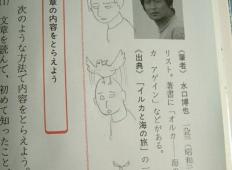 〈筆者〉水口博也 一九五三(昭和二
リスト。著書に「オルカ 海
カ アゲイン」などがある。
〈出典〉「イルカと海の旅」の一
章の内容をとらえよう
次のような方法で内容をとらえよう。
(1) 文章を読んで、初めて知ったこと、